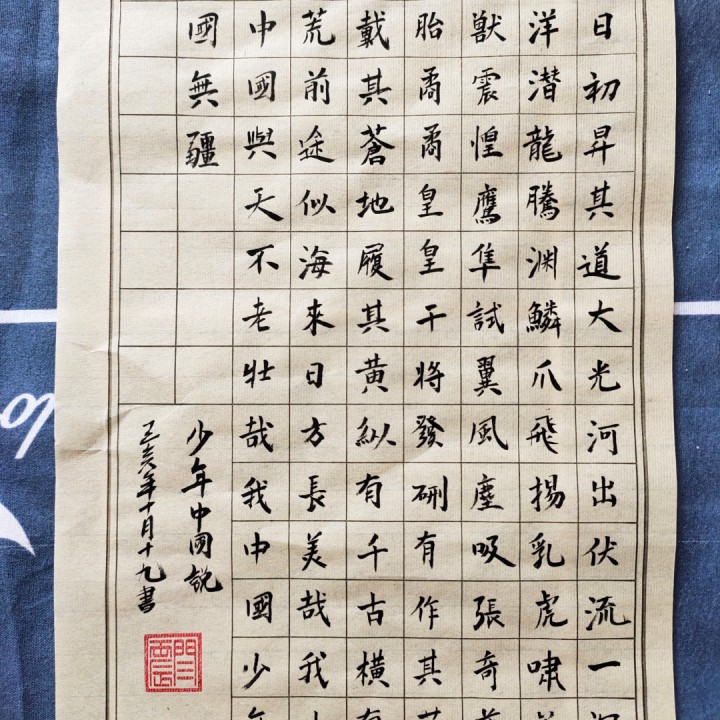 日初昇其道大光河出伏流一
洋潜龍騰渊鱗爪飛揚乳虎嘯
獸震惶鷹隼試翼風塵吸張奇
胎矞矞皇皇干将發硎有作其
戴其蒼地履其黄縱有千古横有
荒前途似海來日方長美哉我少
中國與天不老壯哉我中國少年
國無疆
少年中國說
己亥年十月十九書